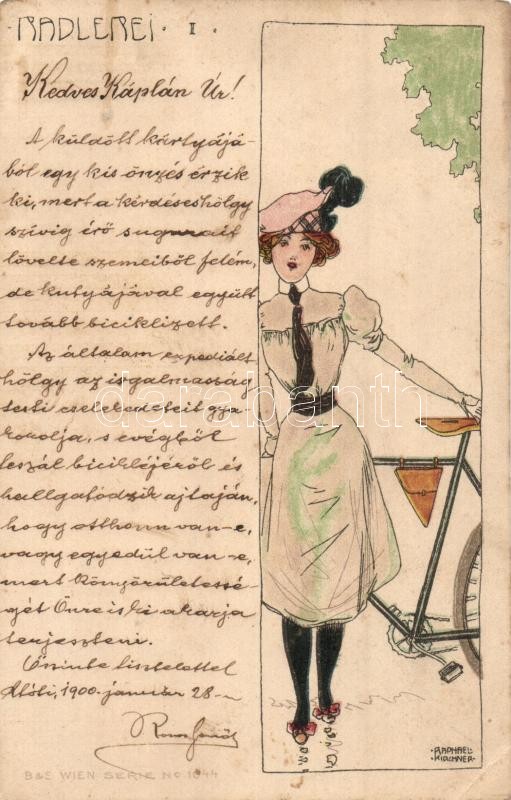 RADLEREI · I ·
Kedves Káplán Úr!
A küldött kártyájá-
ból egy kis önzés érzik
ki, mert a kérdéses hölgy
szívig érő sugarait
lövelte szemeiből felém,
de kutyájával együtt
tovább biciklizett.
Az általam expediált
hölgy az irgalmasság
testi cselekedeteit gya
korolja, s evégből
leszál bicikléjéről és
hallgatódzik ajtaján,
hogy otthonn van-e,
vagy egyedül van-e,
mert könyörületessé-
gét Önre is ki akarja
terjeszteni.
Őszinte tisztelettel
1900. január 28-n
darabanth.com
RAPHAEL
KIRCHNER
B&S WIEN SERIE No 1044